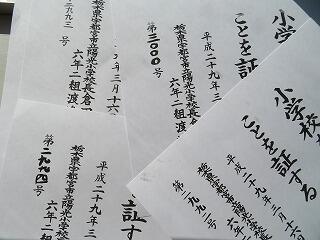 小学
ことを証
平成二十九年三
第三〇〇〇号
栃木県宇都宮市立陽光小学校長倉
六年二組渡
年三月十六
栃木県宇都宮市立陽光小学校長
六年二組
二九九三号
小学校
ことを証する
平成二十九年三月十六日
第二九九二号
栃木県宇都宮市立陽光小学校
六年二
証す
平成二十九年三
第二九九四号
栃木県宇都宮市立陽光小学校
六年二組